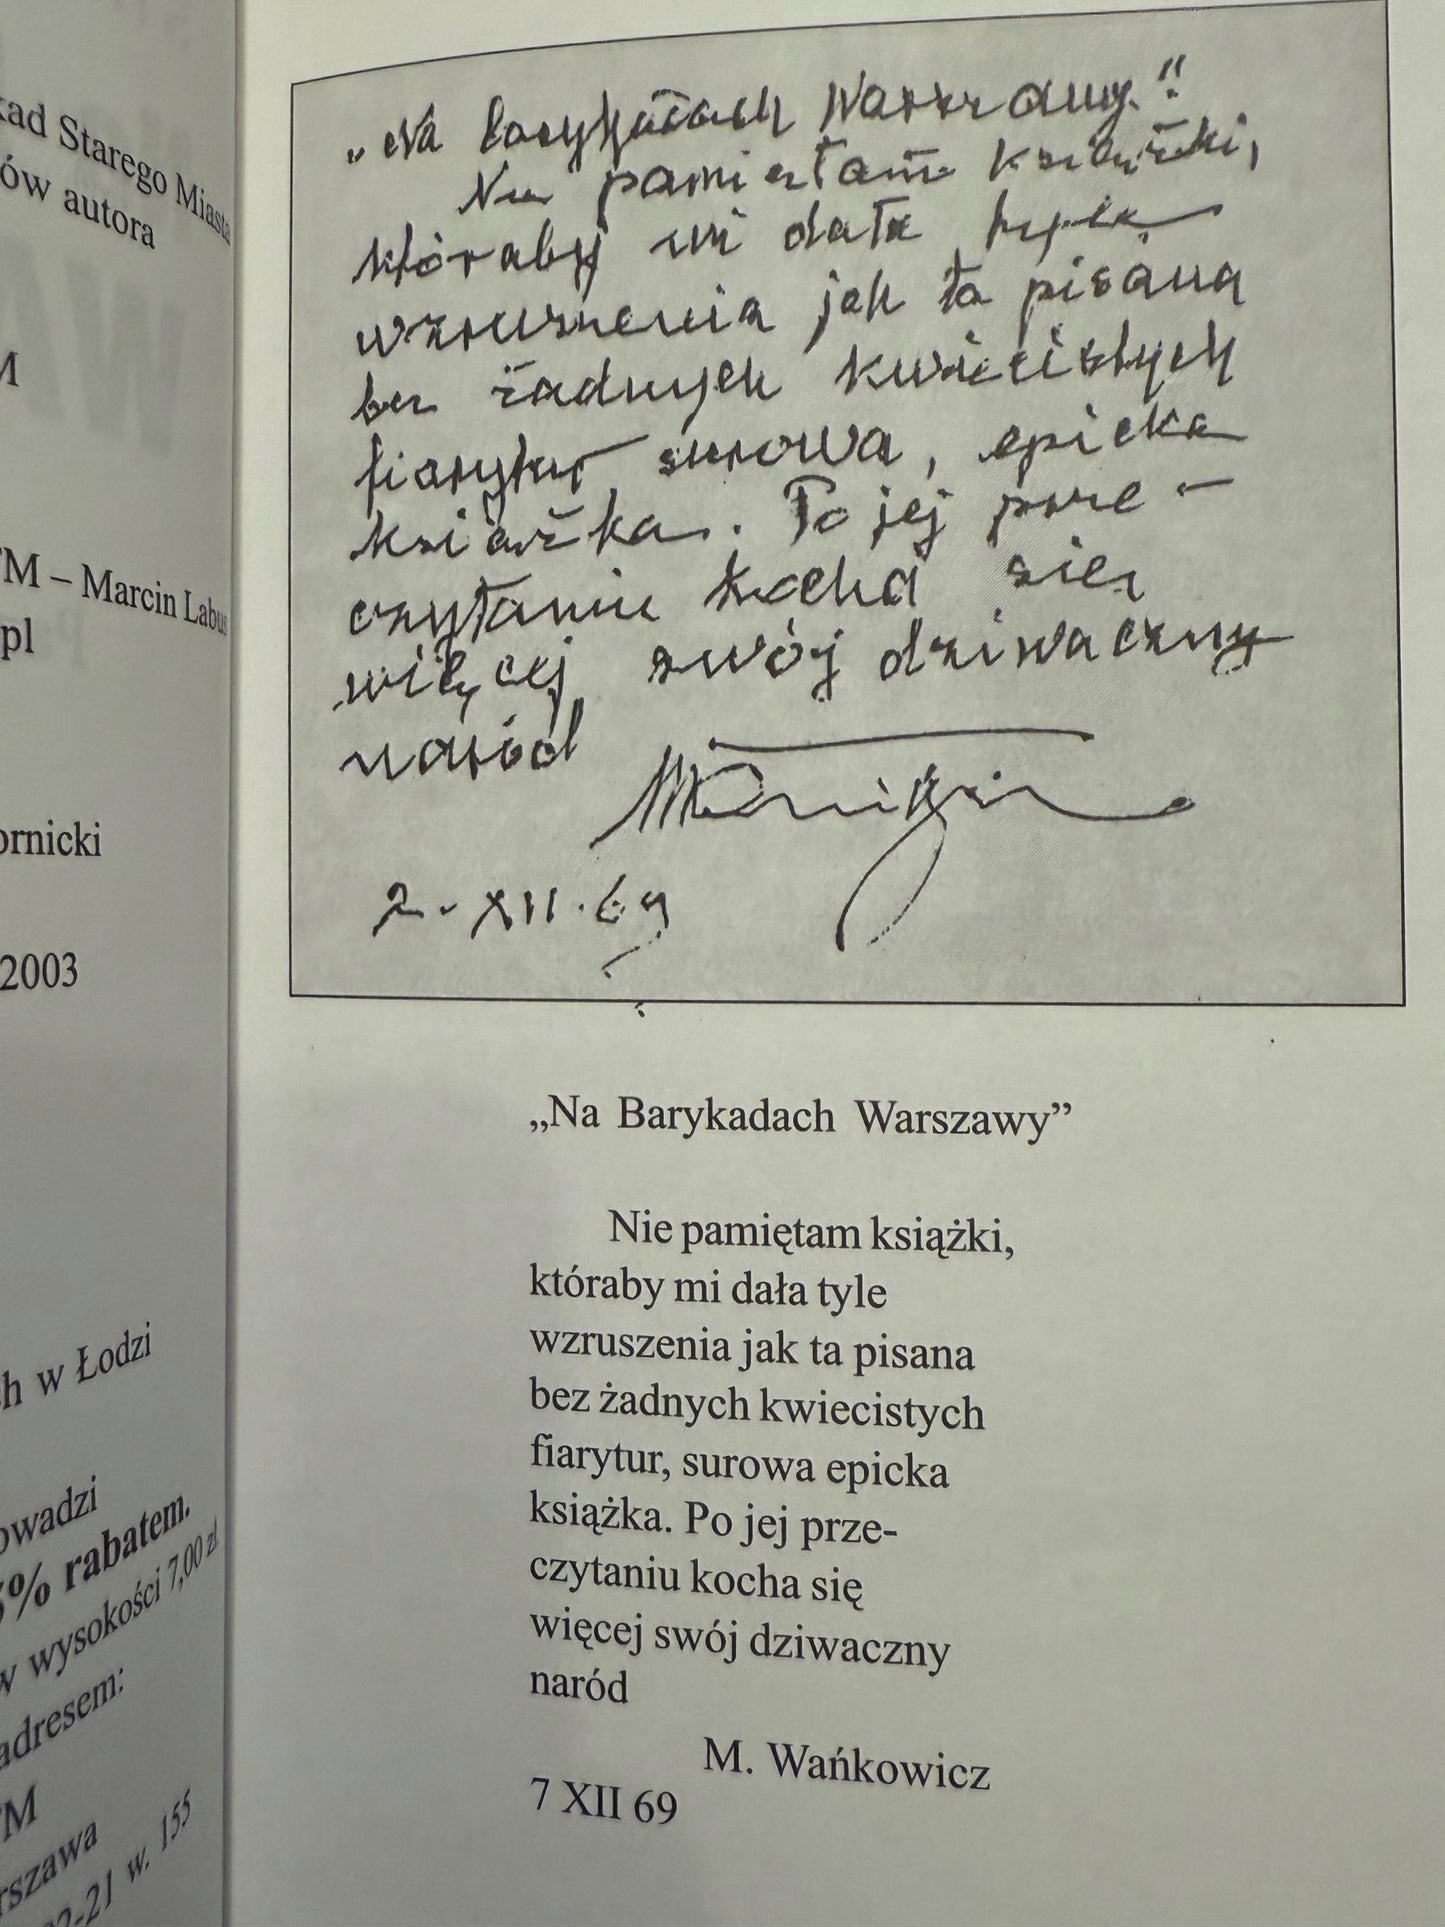 kad Starego Miasta
ów autora
M
TM – Marcin Labus
pl
ornicki
2003
ch w Łodzi
owadzi
5% rabatem.
w wysokości 7,00 zł
adresem:
TM
rszawa
02-21 w. 155
„Na barykadach Warszawy."
Nie pamiętam książki,
któraby mi dała tyle
wzruszenia jak ta pisana
bez żadnych kwiecistych
fiarytur, surowa, epicka
książka. Po jej prze-
czytaniu kocha się
więcej swój dziwaczny
naród
MWańkowicz
2-XII.69
„Na Barykadach Warszawy”
Nie pamiętam książki,
któraby mi dała tyle
wzruszenia jak ta pisana
bez żadnych kwiecistych
fiarytur, surowa epicka
książka. Po jej prze-
czytaniu kocha się
więcej swój dziwaczny
naród
M. Wańkowicz
7 XII 69